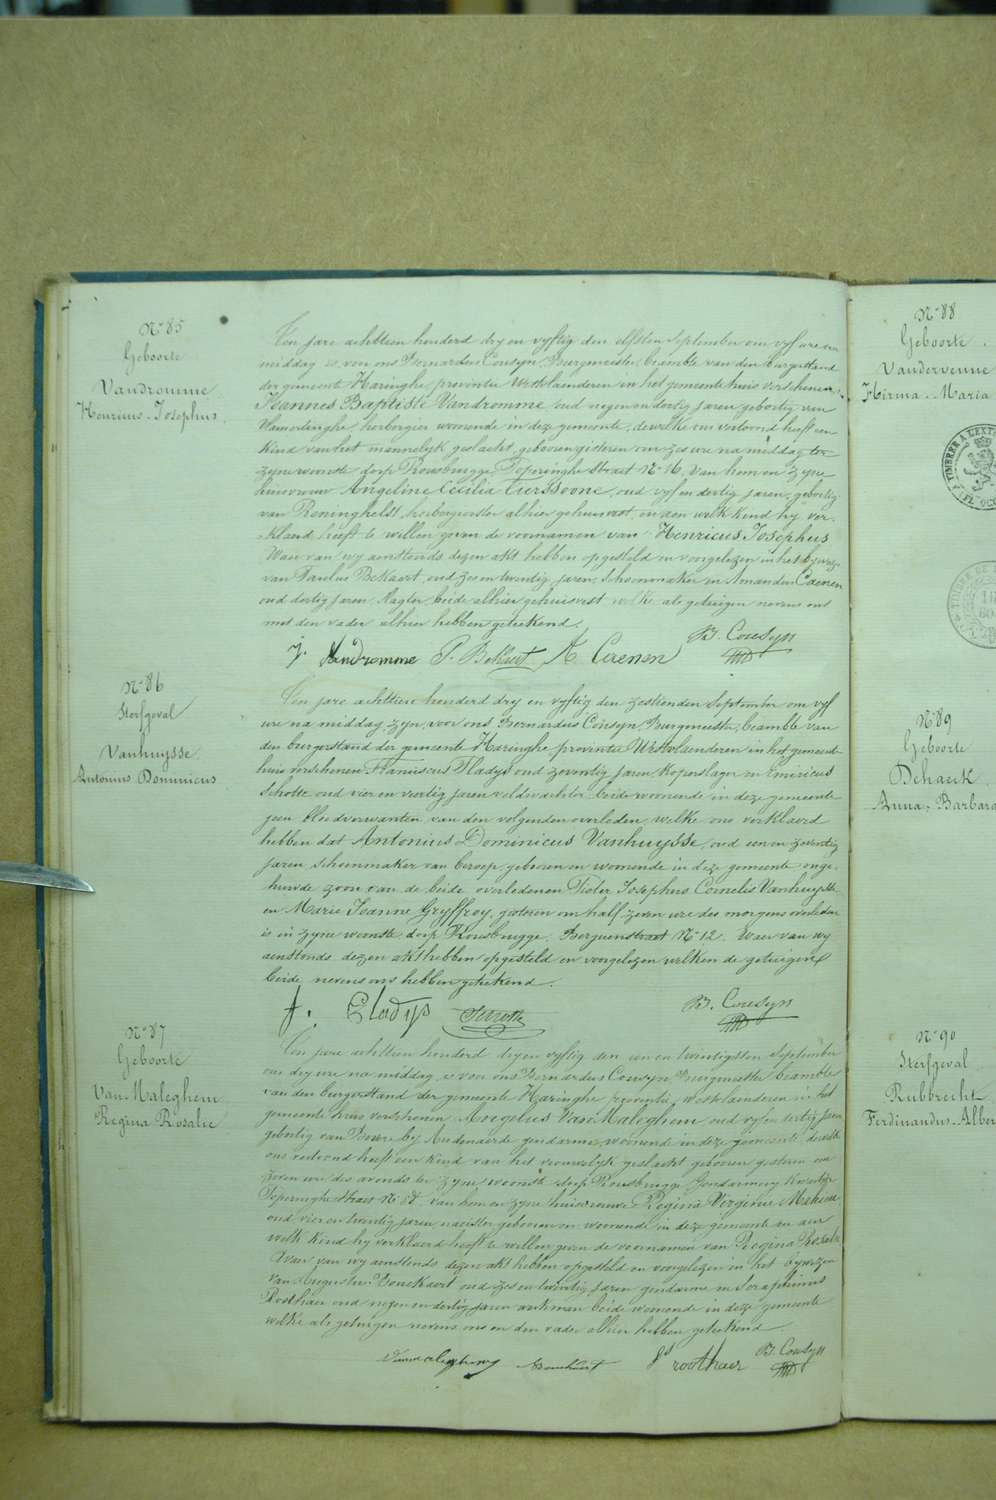 Nº 85
Geboorte
Vandromme
Henricus Josephus
Ten jare achttien honderd dry en vyftig den elfsten September om vyf ure na
middag is voor ons Bernardus Cousyn, Burgmeister, beambte van den burgerstand
der gemeente Haringhe, provintie Westvlaenderen in het gemeente huis verschenen
Joannes Baptiste Vandromme, oud negen en dertig jaren, geboortig van
Vlamertinghe, herbergier woonende in deze gemeente, dewelke ons vertoond heeft een
kind van het mannelyk geslacht, geboren gisteren om zes ure na middag ter
zyne woonste dorp Rousbrugge, Poperinghe straet Nº 16, van hem en zyne
huisvrouw Angeline Cecilia Turssoone, oud vyf en dertig jaren, geboortig
van Reninghelst, herbergierster alhier gehuisvest, en aen welk kind hy ver-
klaerd heeft te willen geven de voornamen van Henricus Josephus
Waer van wy aenstonds dezen akt hebben opgesteld en voorgelezen in het bywezen
van Paulus Bekaert, oud zes en twintig jaren, Schoenmaker en Amandus Coenen
oud dertig jaren, beide alhier gehuisvest welke als getuigen nevens ons
met den vader alhier hebben geteekend.
J. Vandromme P. Bekaert A. Coenen B. Cousyn
Nº 86
Sterfgeval
Vanhuysse
Antonius Dominicus
Ten jare achttien honderd dry en vyftig den zestienden September om vyf
ure na middag, zyn voor ons Bernardus Cousyn, Burgmeister, beambte van
den burgerstand der gemeente Haringhe provintie Westvlaenderen in het gemeente
huis verschenen Franciscus Gladys oud zeventig jaren, koperslager en
Schotte oud vier en veertig jaren veldwachter beide woonende in deze gemeente
geen bloedverwanten van den volgenden overleden, welke ons verklaerd
hebben dat Antonius Dominicus Vanhuysse, oud een en zeventig
jaren schoenmaker van beroep, geboren en woonende in deze gemeente onge-
huwde zoon van de beide overledenen Pieter Josephus Cornelis Vanhuysse
en Marie Joanne Gryffroy, gisteren om half zeven ure des morgens overleden
is in zyne woonste, dorp Rousbrugge, Berguenstraet Nº 12. Waer van wy
aenstonds dezen akt hebben opgesteld en voorgelezen welken de getuigen
beide nevens ons hebben geteekend.
f. Gladys Schotte B. Cousyn
Nº 87
Geboorte
Van Maleghem
Regina Rosalie
Ten jare achttien honderd dry en vyftig den een en twintigsten September
om dry ure na middag, is voor ons Bernardus Cousyn Burgmeester beambte
van den burgerstand der gemeente Haringhe provintie Westvlaenderen in het
gemeente huis verschenen Angelus Van Maleghem oud vyf en dertig jaren
geboortig van by Audenaerde, gendarme, woonende in deze gemeente, dewelke
ons vertoond heeft een kind van het vrouwelyk geslacht geboren gisteren om
zeven ure des avonds ter zyne woonste dorp Rousbrugge Gendarmery Kwartier
Poperinghe straet van hem en zyne huisvrouwe Regina Virginie
oud vier en twintig jaren naeister geboren en woonende in deze gemeente en aen
welk kind hy verklaerd heeft te willen geven de voornamen van Regina Rosalie
Waer van wy aenstonds dezen akt hebben opgesteld en voorgelezen in het bywezen
van Augustin oud zes en twintig jaren gendarme en Seraphinus
Roothaer oud negen en dertig jaren werkman beide woonende in deze gemeente
welke als getuigen nevens ons en den vader alhier hebben geteekend.
Vanmaleghem Sr roothaer B. Cousyn
Nº 88
Geboorte
Vandervenne
Hirma Maria
Nº 89
Geboorte
Dehaeck
Anna, Barbara
Nº 90
Sterfgeval
Rubbrecht
Ferdinandus-Alber